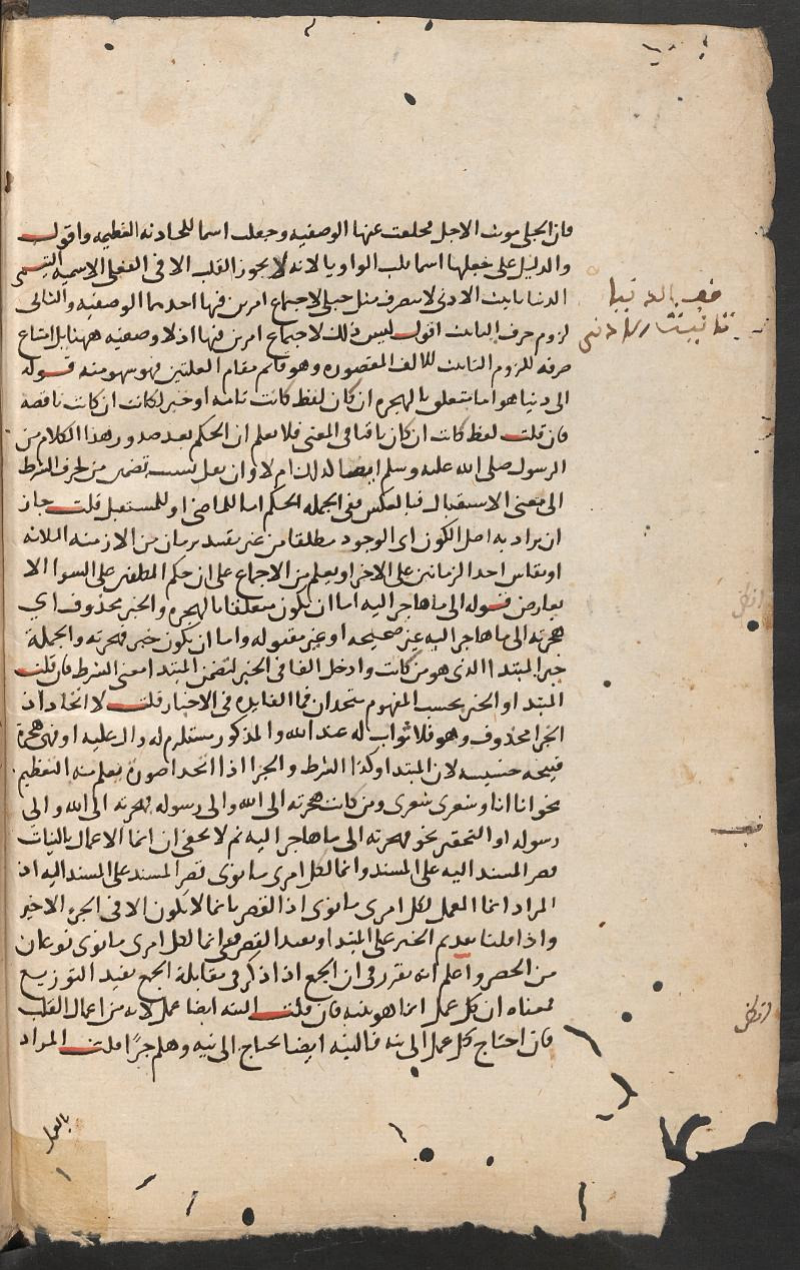 فان الجلى مونث الاجل فخلعت عنها الوصفيه وجعلت اسما للحادثه العظيمه واقول
والدليل على جعلها اسما قلب الواو يا لانه لا يجوز القلب الا في الفعلى الاسميه التيمى
الدنيا تانيث الادنى لا ينصرف مثل حبلى لاجتماع امرين فيها احدهما الوصفيه والثانى
لزوم حرف التانيث اقول ليس ذلك لاجتماع امرين فيها اذ لا وصفيه ههنا بل امتناع
صرفه للزوم التانيث للالف المقصوره وهو قائم مقام العلتين فهو سهو منه قوله
الى دنيا هو اما متعلق بالهجره ان كان لفظ كانت تامه او خبر لكانت ان كانت ناقصه
فان قلت لفظ كانت ان كان باقيا فى المعنى فلا يعلم ان الحكم بعد صدور هذا الكلام من
الرسول صلى الله عليه وسلم ايضا كذلك ام لا وان نقل بسبب تضمن من لحرف الشرط
الى معنى الاستقبال فبالعكس ففى الجمله الحكم اما للماضى او للمستقبل قلت جاز
ان يراد به اصل الكون اى الوجود مطلقا من غير تقييد بزمان من الازمنه الثلاثه
او يقاس احد الزمانين على الاخر او يعلم من الاجماع على ان حكم المكلفين على السوا الا
بعارض قوله الى ما هاجر اليه اما ان يكون متعلقا بالهجره والخبر محذوف اي
هجرته الى ما هاجر اليه غير صحيحه او غير مقبوله واما ان يكون خبر فهجرته والجملة
خبر المبتدا الذى هو من كانت وادخل الفا فى الخبر لتضمن المبتدا معنى الشرط فان قلت
المبتدا والخبر بحسب المفهوم متحدان فما الفايده فى الاخبار قلت لا اتحاد اذ
الجزا محذوف وهو فلا ثواب له عند الله والمذكور مستلزم له دال عليه او فهى هجرة
قبيحه خسيسه لان المبتدا وكذا الشرط والجزا اذا اتحدا صورة يعلم منه التعظيم
نحو انا انا وشعرى شعرى ومن كانت هجرته الى الله والى رسوله فهجرته الى الله والى
رسوله او التحقير نحو فهجرته الى ما هاجر اليه ثم لا يخفى ان انما الاعمال بالنيات
قصر المسند اليه على المسند وانما لكل امرى ما نوى قصر المسند على المسند اليه اذ
المراد انما العمل لكل امرى ما نوى اذ القصر بانما لا يكون الا فى الجزء الاخير
واذا قلنا تقديم الخبر على المبتدا يفيد القصر ففى انما لكل امرى ما نوى نوعان
من الحصر واعلم انه تقرر فى ان الجمع اذا ذكر فى مقابلة الجمع يفيد التوزيع
فمعناه ان كل عمل انما هو بنيه فان قلت النيه ايضا عمل لانه من اعمال القلب
فان احتاج كل عمل الى نيه فالنيه ايضا يحتاج الى نيه وهلم جرًا قلت المراد
بالعمل
الدنيا
تانيث الادنى